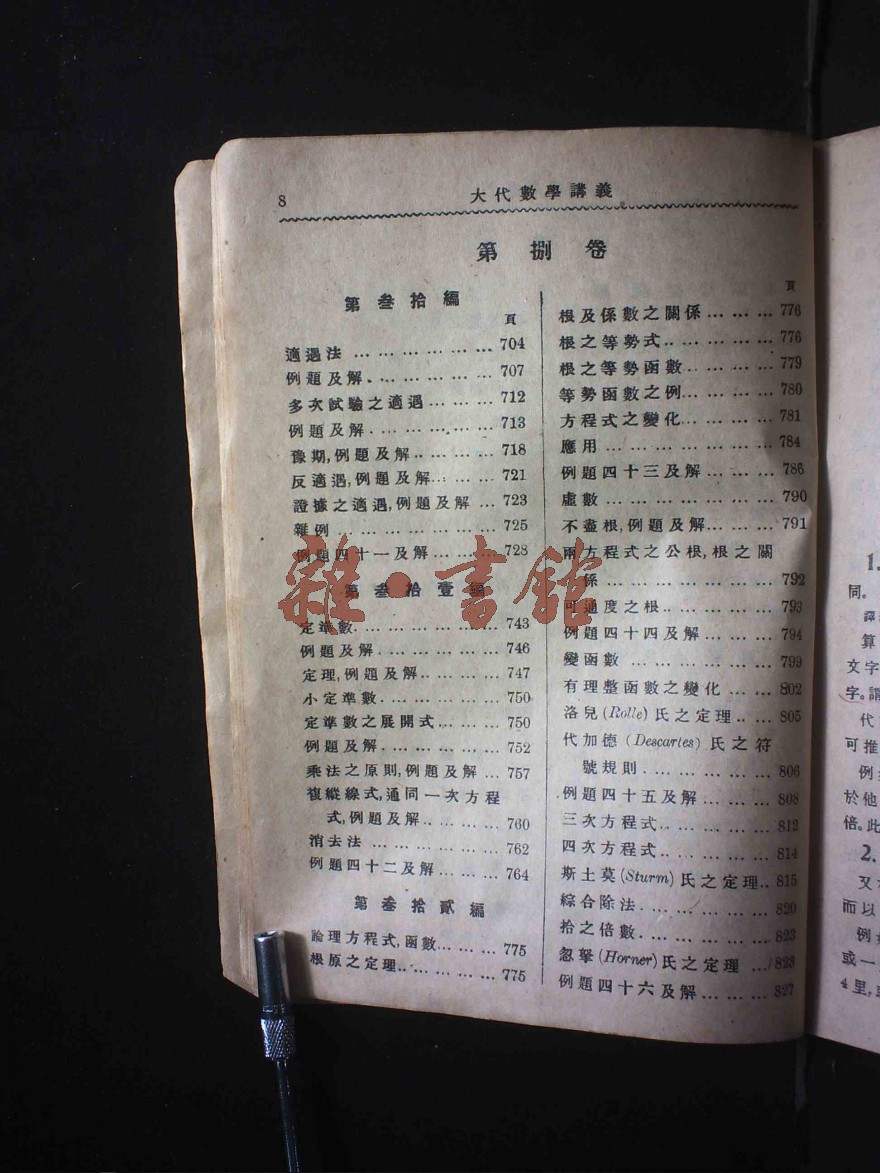 8
大代數學講義
第捌卷
第叁拾編
頁
適遇法 ……………… 704
例題及解……………… 707
多次試驗之適遇……… 712
例題及解……………… 713
豫期,例題及解………… 718
反適遇,例題及解……… 721
證據之適遇,例題及解 … 723
雜例 ………………… 725
例題四十一及解……… 728
第叁拾壹編
定準數………………… 743
例題及解……………… 746
定理,例題及解………… 747
小定準數……………… 750
定準數之展開式……… 750
例題及解……………… 752
乘法之原則,例題及解 … 757
複縱線式,通同一次方程
式,例題及解………… 760
消去法 ……………… 762
例題四十二及解……… 764
第叁拾貳編
論理方程式,函數……… 775
根原之定理…………… 775
頁
根及係數之關係……… 776
根之等勢式…………… 776
根之等勢函數………… 779
等勢函數之例………… 780
方程式之變化………… 781
應用 ………………… 784
例題四十三及解……… 786
虛數 ………………… 790
不盡根,例題及解……… 791
兩方程式之公根,根之關
係 ………………… 792
可通度之根…………… 793
例題四十四及解……… 794
變函數 ……………… 799
有理整函數之變化 …… 802
洛兒(Rolle)氏之定理…… 805
代加德(Descartes)氏之符
號規則……………… 806
例題四十五及解……… 808
三次方程式…………… 812
四次方程式…………… 814
斯土莫(Sturm)氏之定理… 815
綜合除法……………… 820
拾之倍數……………… 823
忽拏(Horner)氏之定理 … 823
例題四十六及解……… 827
雜·書館
1.
同。
算
文字
字。謂
代
可推
例
於他
倍。此
2.
又
而以
例
或一
4里,